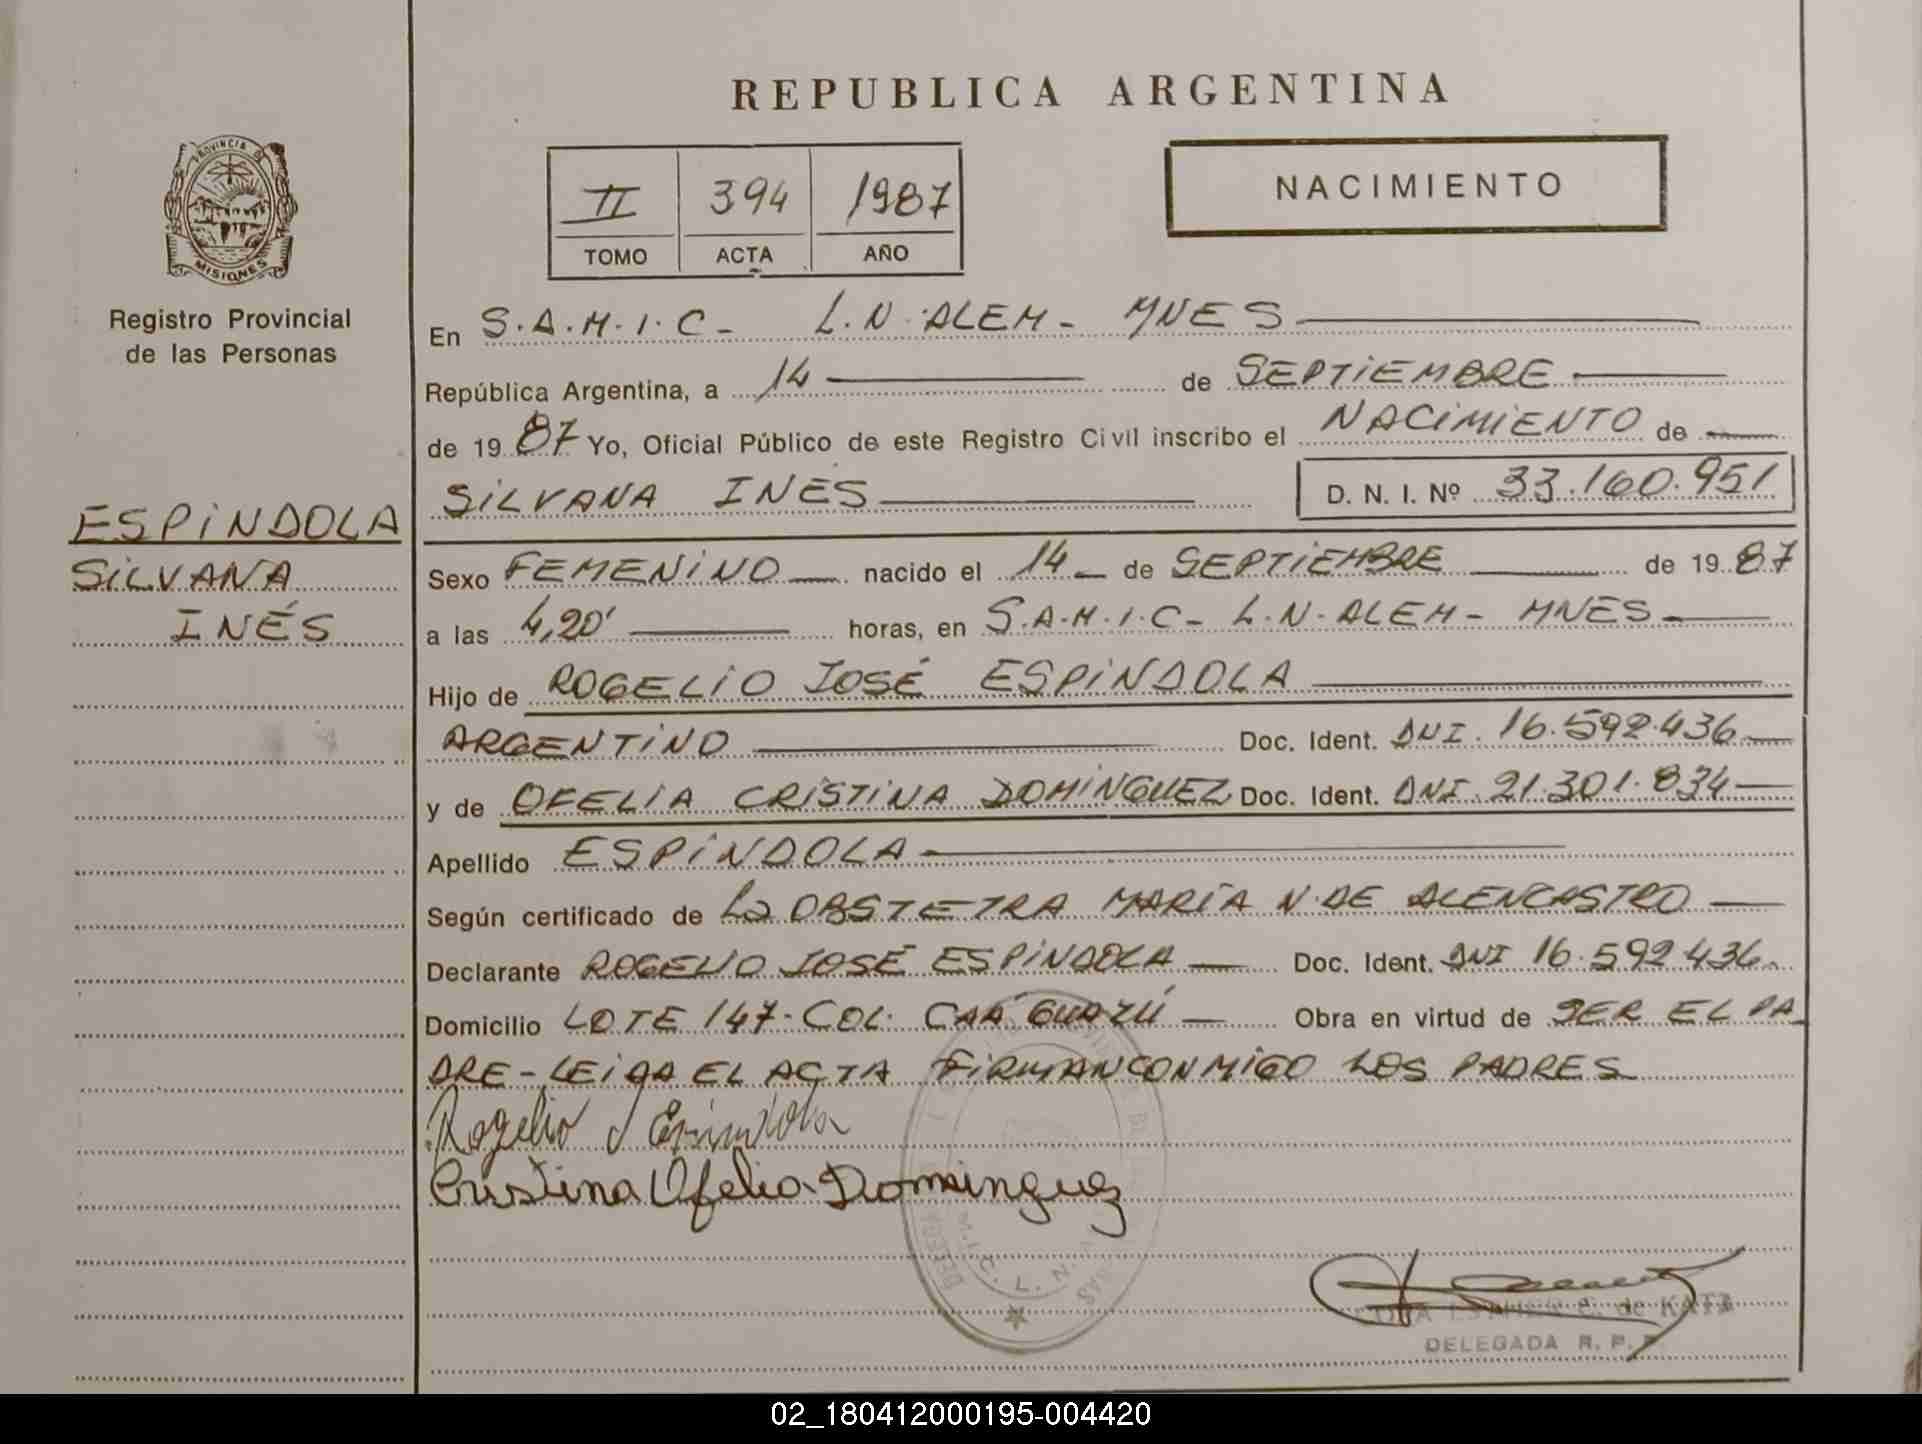 REPUBLICA ARGENTINA
PROVINCIA DE
MISIONES
Registro Provincial
de las Personas
II 394 1987
TOMO ACTA AÑO
NACIMIENTO
En S.A.M.I.C- L.N.ALEM- MNES
República Argentina, a 14 de SEPTIEMBRE
de 1987 Yo, Oficial Público de este Registro Civil inscribo el NACIMIENTO de
SILVANA INÉS D. N. I. Nº 33.160.951
ESPINDOLA
SILVANA
INÉS
Sexo FEMENINO nacido el 14 de SEPTIEMBRE de 1987
a las 4,20' horas, en S.A.M.I.C- L.N.ALEM- MNES
Hijo de ROGELIO JOSÉ ESPINDOLA
ARGENTINO Doc. Ident. DNI. 16.592.436
y de OFELIA CRISTINA DOMINGUEZ Doc. Ident. DNI. 21.301.834
Apellido ESPINDOLA
Según certificado de La OBSTETRA MARÍA N. DE ALENCASTRO
Declarante ROGELIO JOSÉ ESPINDOLA Doc. Ident. DNI 16.592.436
Domicilio LOTE 147- COL. CAÁ GUAZÚ Obra en virtud de SER EL PA
DRE-LEIDA EL ACTA FIRMAN CONMIGO LOS PADRES
Rogelio J Espindola
Cristina Ofelia Dominguez
E. de KATZ
DELEGADA R. P.
02_180412000195-004420